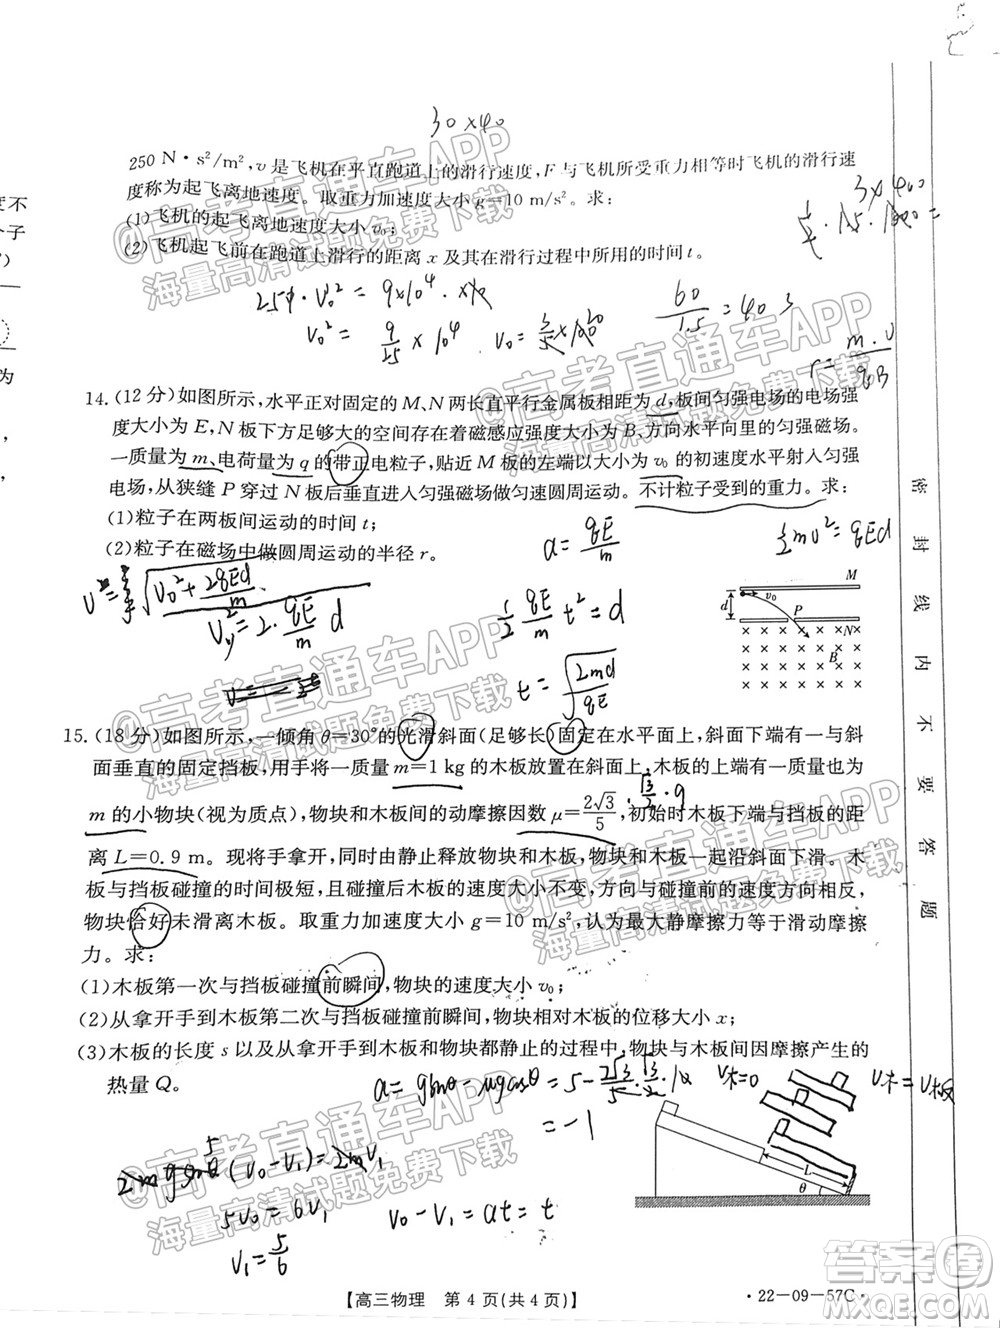 30×40
250 N·s²/m²,v是飞机在平直跑道上的滑行速度,F与飞机所受重力相等时飞机的滑行速
度称为起飞离地速度。取重力加速度大小g=10 m/s²。求:
(1)飞机的起飞离地速度大小v₀;
(2)飞机起飞前在跑道上滑行的距离x及其在滑行过程中所用的时间t。
v₀² = 9/25 × 10⁴
60/1.5 = 40 s
r = m·v/qB
14.(12分)如图所示,水平正对固定的M、N两长直平行金属板间的距离为d,板间匀强电场的电场强
度大小为E,N板下方足够大的空间存在着磁感应强度大小为B、方向水平向里的匀强磁场。
一质量为m、电荷量为q的带正电粒子,贴近M板的左端以大小为v₀的初速度水平射入匀强
电场,从狭缝P穿过N板后垂直进入匀强磁场做匀速圆周运动。不计粒子受到的重力。求:
(1)粒子在两板间运动的时间t;
(2)粒子在磁场中做圆周运动的半径r。
a = qE/m
½mv² = qEd
√(v₀² + 2qEd/m)
v_y² = 2·qE/m d
½ qE/m t² = d
t = √(2md/qE)
M
v₀
d
P
N
B
15.(18分)如图所示,一倾角θ=30°的光滑斜面(足够长)固定在水平面上,斜面下端有一与斜
面垂直的固定挡板,用手将一质量m=1 kg的木板放置在斜面上,木板的上端有一质量也为
m的小物块(视为质点),物块与木板间的动摩擦因数μ=2√3/5,初始时木板下端与挡板的距
离L=0.9 m。现将手拿开,同时由静止释放物块和木板,物块与木板一起沿斜面下滑。木
板与挡板碰撞的时间极短,且碰撞后木板的速度大小不变,方向与碰撞前的速度方向相反,
物块恰好未滑离木板。取重力加速度大小g=10 m/s²,认为最大静摩擦力等于滑动摩擦
力。求:
(1)木板第一次与挡板碰撞前瞬间,物块的速度大小v₀;
(2)从拿开手到木板第二次与挡板碰撞前瞬间,物块相对木板的位移大小x;
(3)木板的长度s以及从拿开手到木板和物块都静止的过程中,物块与木板间因摩擦产生的
热量Q。
a = gsinθ − μgcosθ = 5 − 2√3/5 · √3/2 · 10
= −1
v木=0
v木 = v板
(v₀−v₁) = 2mv₁
5v₀ = 6v₁
v₀ − v₁ = at = t
v₁ = 5/6
L
θ
密 封 线 内 不 要 答 题
【高三物理 第4页(共4页)】
·22−09−57C·
@高考直通车APP
海量高清试题免费下载
@高考直通车APP
海量高清试题免费下载
@高考直通车APP
海量高清试题免费下载
@高考直通车APP
海量高清试题免费下载
@高考直通车APP
海量高清试题免费下载
@高考直通车APP
海量高清试题免费下载
答案圈
MXQE.COM